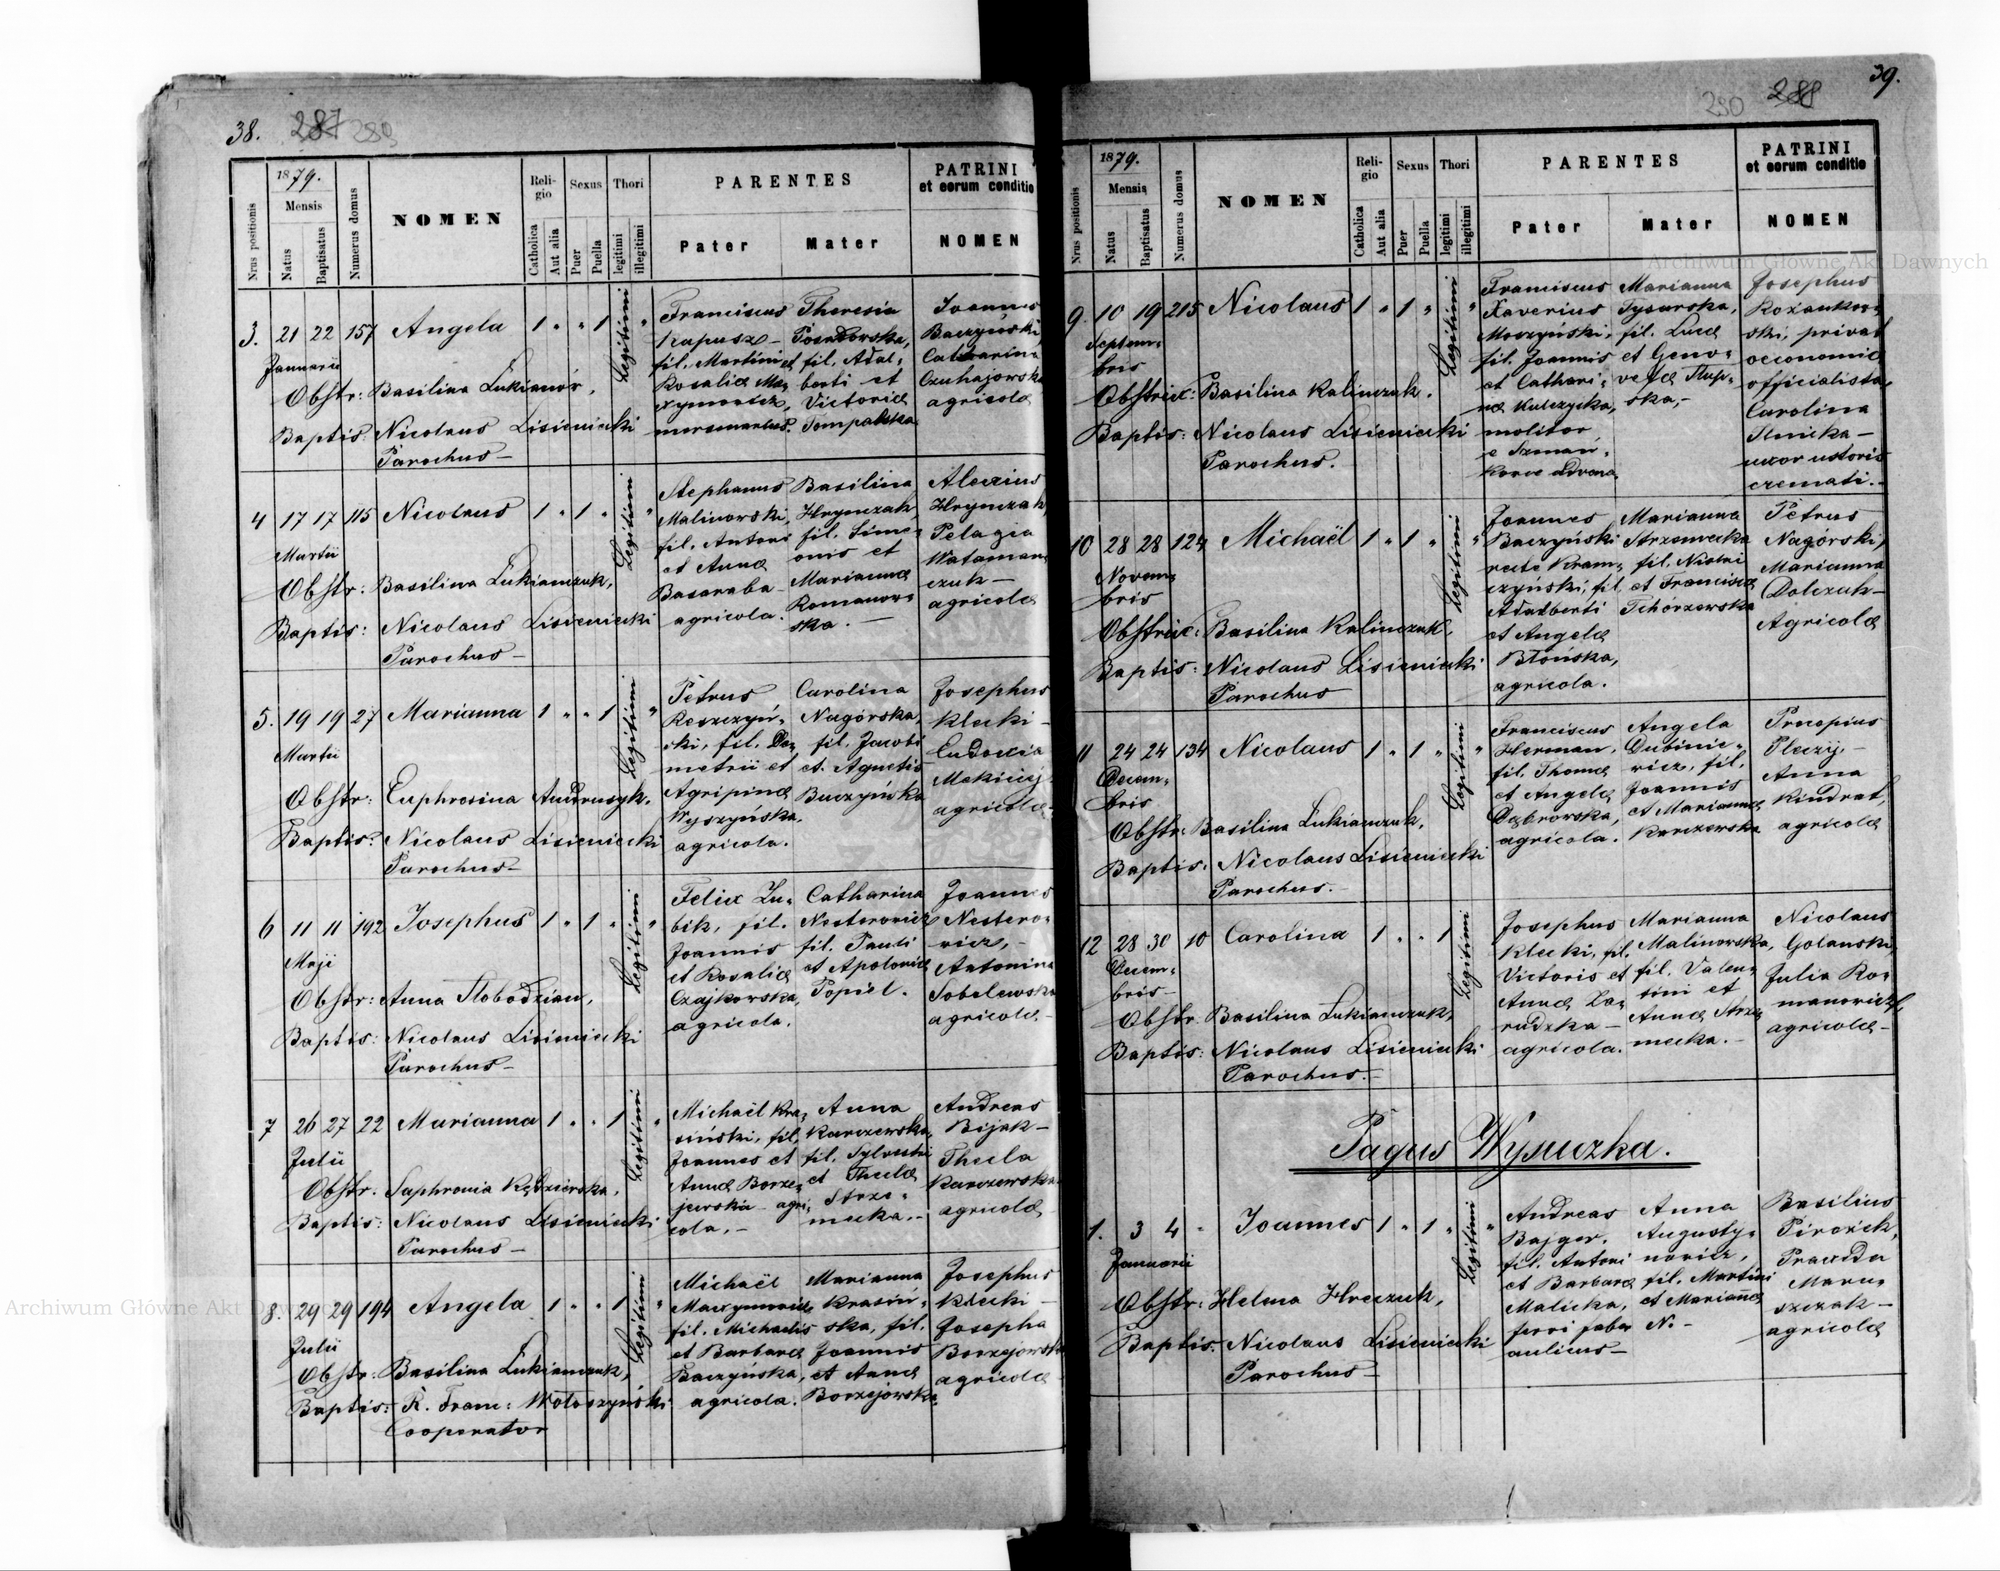 38. 287 289
1879.
Nrus positionis
Mensis
Natus
Baptisatus
Numerus domus
NOMEN
Reli-
gio
Catholica
Aut alia
Sexus
Puer
Puella
Thori
legitimi
illegitimi
PARENTES
Pater
Mater
PATRINI
et eorum conditio
NOMEN
3. 21 22 157 Angela 1 " " 1 Legitimi "
Januarii
Obstr: Basilina Lukianów,
Baptis: Nicolaus Lisieniecki
Parochus —
Franciscus
Kapusz —
fil. Martini et
Rosaliæ Ma-
xymowicz,
murarius.
Theresia
fil. Adal-
berti et
Victoriæ
Joannes
Baczyński,
Catharina
Czuhajowska
agricolæ
4 17 17 115 Nicolaus 1 " 1 " Legitimi "
Martii
Obstr: Basilina Lukianczuk,
Baptis: Nicolaus Lisieniecki
Parochus —
Stephanus
Malinowski,
fil. Antoni
et Annæ
Basaraba
agricola.
Basilina
Hrynczak,
fil. Sime-
onis et
Mariannæ
Romanow-
ska. —
Alexius
Hrynczak,
Pelagia
Wataman-
czuk —
agricolæ
5. 19 19 27 Marianna 1 " " 1 Legitimi "
Martii
Obstr: Euphrosina Andrusyk.
Baptis: Nicolaus Lisieniecki
Parochus —
Petrus
Reszczyń-
ski, fil. De-
metrii et
Agripinæ
Wyszyńska,
agricola.
Carolina
Nagórska,
fil. Jacobi
et Agnetis
Baczyńska
Josephus
Klecki —
Eudoxia
Mekicej
agricolæ —
6 11 11 192 Josephus 1 " 1 " Legitimi "
Maji
Obstr: Anna Slobodzian,
Baptis: Nicolaus Lisieniecki
Parochus —
Felix Zu-
bik, fil.
Joannis
et Rosaliæ
Czajkowska,
agricola.
Catharina
Nesterowicz
fil. Pauli
et Apoloniæ
Popiel.
Joannes
Nestero-
wicz, —
Antonina
Sobolewska
agricolæ —
7 26 27 22 Marianna 1 " " 1 Legitimi "
Julii
Obstr. Saphronia Kędzierska,
Baptis: Nicolaus Lisieniecki
Parochus —
Michaël Kra-
siński, fil.
Joannes et
Annæ Borze-
jewska — agri-
cola, —
Anna
Karczewska,
fil. Sylvestri
et Theclæ
Strze-
mecka. —
Andreas
Bijak —
Thecla
Karczewska
agricolæ
8. 29 29 194 Angela 1 " " 1 Legitimi "
Julii
Obstr: Basilina Lukianczuk,
Baptis: R. Franc: Wołoszyński
Cooperator
Michaël
Maxymowicz
fil. Michaelis
et Barbaræ
Baczyńska,
agricola.
Marianna
Krasiń-
ska, fil.
Joannis
et Annæ
Borzejowska.
Josephus
Klecki —
Josepha
Borzejowska
agricolæ
39.
290 288
1879.
Nrus positionis
Mensis
Natus
Baptisatus
Numerus domus
NOMEN
Reli-
gio
Catholica
Aut alia
Sexus
Puer
Puella
Thori
legitimi
illegitimi
PARENTES
Pater
Mater
PATRINI
et eorum conditio
NOMEN
9. 10 19 215 Nicolaus 1 " 1 " Legitimi "
Septem-
bris
Obstrix: Basilina Kalinczuk.
Baptis: Nicolaus Lisieniecki
Parochus.
Franciscus
Xaverius
Moszyński,
fil. Joannis
et Cathari-
næ Kulczycka,
molitor
e Szmań-
Marianna
Tysarska,
fil. Lucæ
et Geno-
vefæ Słup-
ska, —
Josephus
Rożankow-
ski, privat
oeconomiæ
officialista,
Carolina
Ilnicka —
uxor ustoris
cremati. —
10 28 28 124 Michaël 1 " 1 " Legitimi "
Novem-
bris
Obstrix: Basilina Kalinczuk.
Baptis: Nicolaus Lisieniecki
Parochus
Joannes
Baczyński
recte Kram-
czyński, fil.
Adalberti
et Angelæ
Błońska,
agricola.
Marianna
Strzemecka
fil. Nicolai
et Franciscæ
Tchorzewska
Petrus
Nagórski,
Marianna
Dolczuk —
Agricolæ
11 24 24 134 Nicolaus 1 " 1 " Legitimi "
Decem-
bris
Obstr: Basilina Lukianczuk,
Baptis: Nicolaus Lisieniecki
Parochus. —
Franciscus
Herman,
fil. Thomæ
et Angelæ
Dąbrowska,
agricola.
Angela
Dubinie-
wicz, fil.
Joannis
et Mariannæ
Karczewska
Procopius
Pleczij —
Anna
Kindrat,
agricolæ
12 28 30 10 Carolina 1 " " 1 Legitimi
Decem-
bris —
Obstr. Basilina Lukianczuk,
Baptis: Nicolaus Lisieniecki
Parochus. —
Josephus
Klecki, fil.
Victoris et
Annæ Za-
rudzka —
agricola.
Marianna
Malinowska,
fil. Valen-
tini et
Annæ Strze-
mecka. —
Nicolaus
Golanski,
Julia Ro-
manowicz,
agricolæ —
Pagus Wysuczka.
1. 3 4 - Joannes 1 " 1 " Legitimi "
Januarii
Obstr: Helena Hreczuk,
Baptis: Nicolaus Lisieniecki
Parochus —
Andreas
Bajger,
fil. Antoni
et Barbaræ
Malicka,
ferri faber
aulicus —
Anna
Augusty-
nowicz,
fil. Martini
et Mariannæ
N. —
Basilius
Pirożek,
Praxeda
Maru-
szczak —
agricolæ
Archiwum Główne Akt Dawnych
Archiwum Główne Akt Dawnych